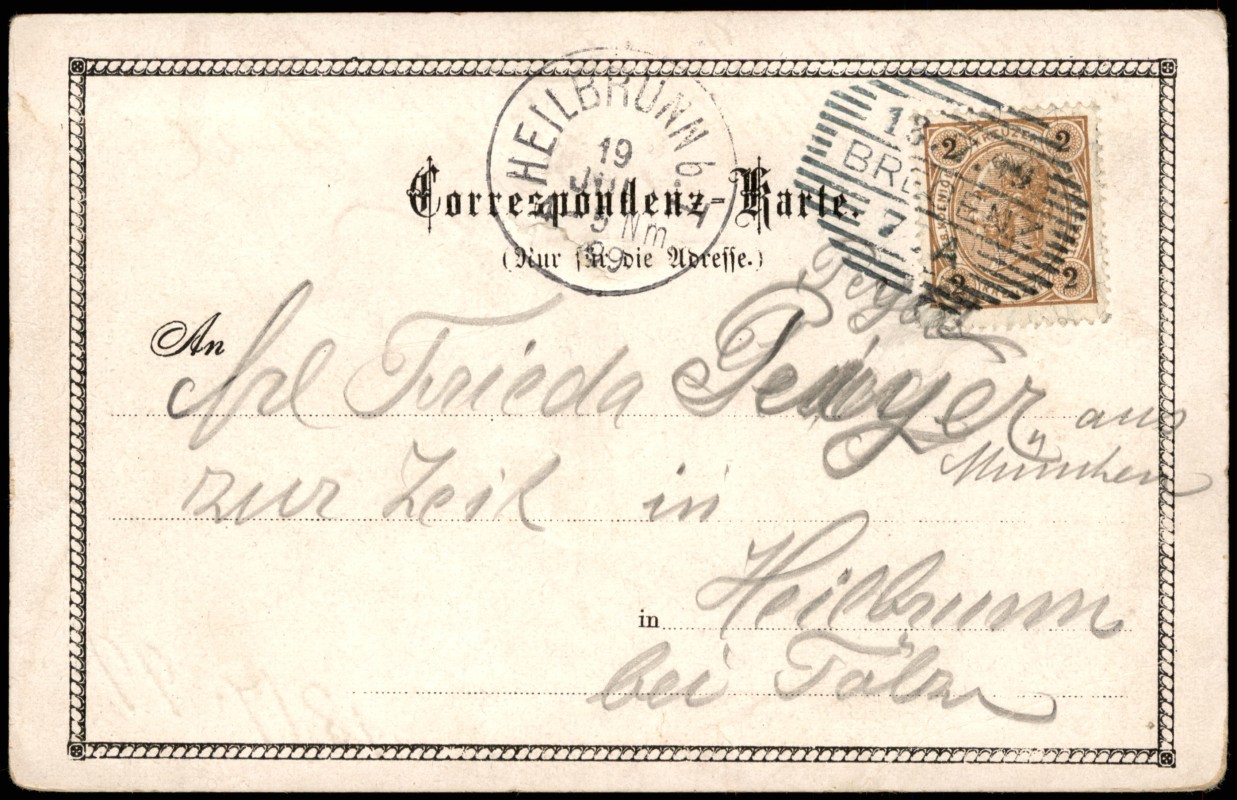 HEILBRUNN b
19
JUL
5 Nm
99
13
BRE
7
2 2
2 2
Correspondenz-Karte.
(Nur für die Adresse.)
An Frl Frieda aus
München
zur Zeit in
in Heilbrunn
bei Tölz